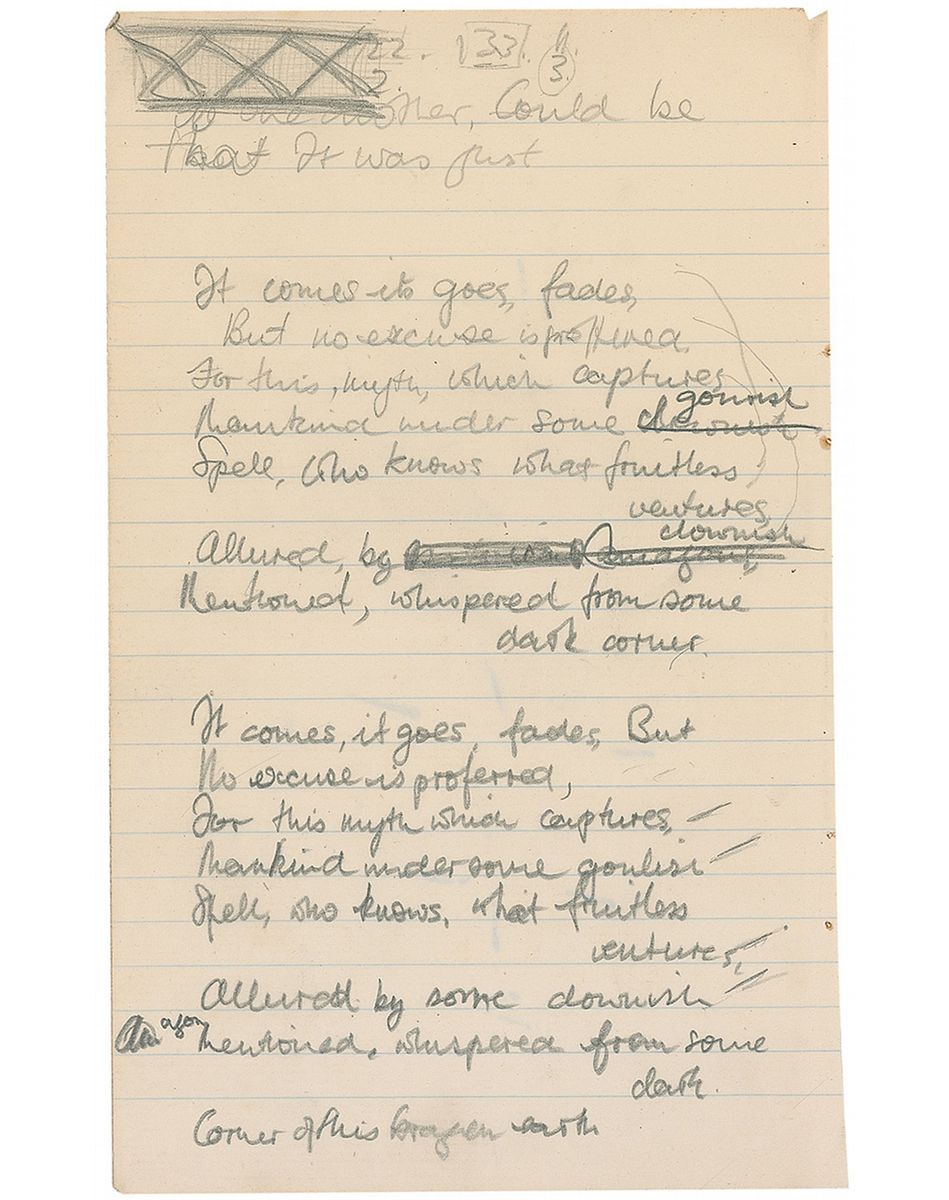 22. 33. 11.
2 3.
to one another, Could be
that It was just
It comes its goes, fades,
But no excuse is proffered.
For this, myth, which captures
gourish
Mankind under some clownish
Spell, Who knows what fruitless
ventures,
clownish
Allured, by
Mentioned, whispered from some
dark corner.
It comes, it goes, fades, But
No excuse is proferred,
For this myth which captures,
Mankind under some goulish
Spell, who knows, what fruitless
ventures,
Allured by some clownish
agon
Mentioned, whispered from some
dark.
Corner of this brazen earth